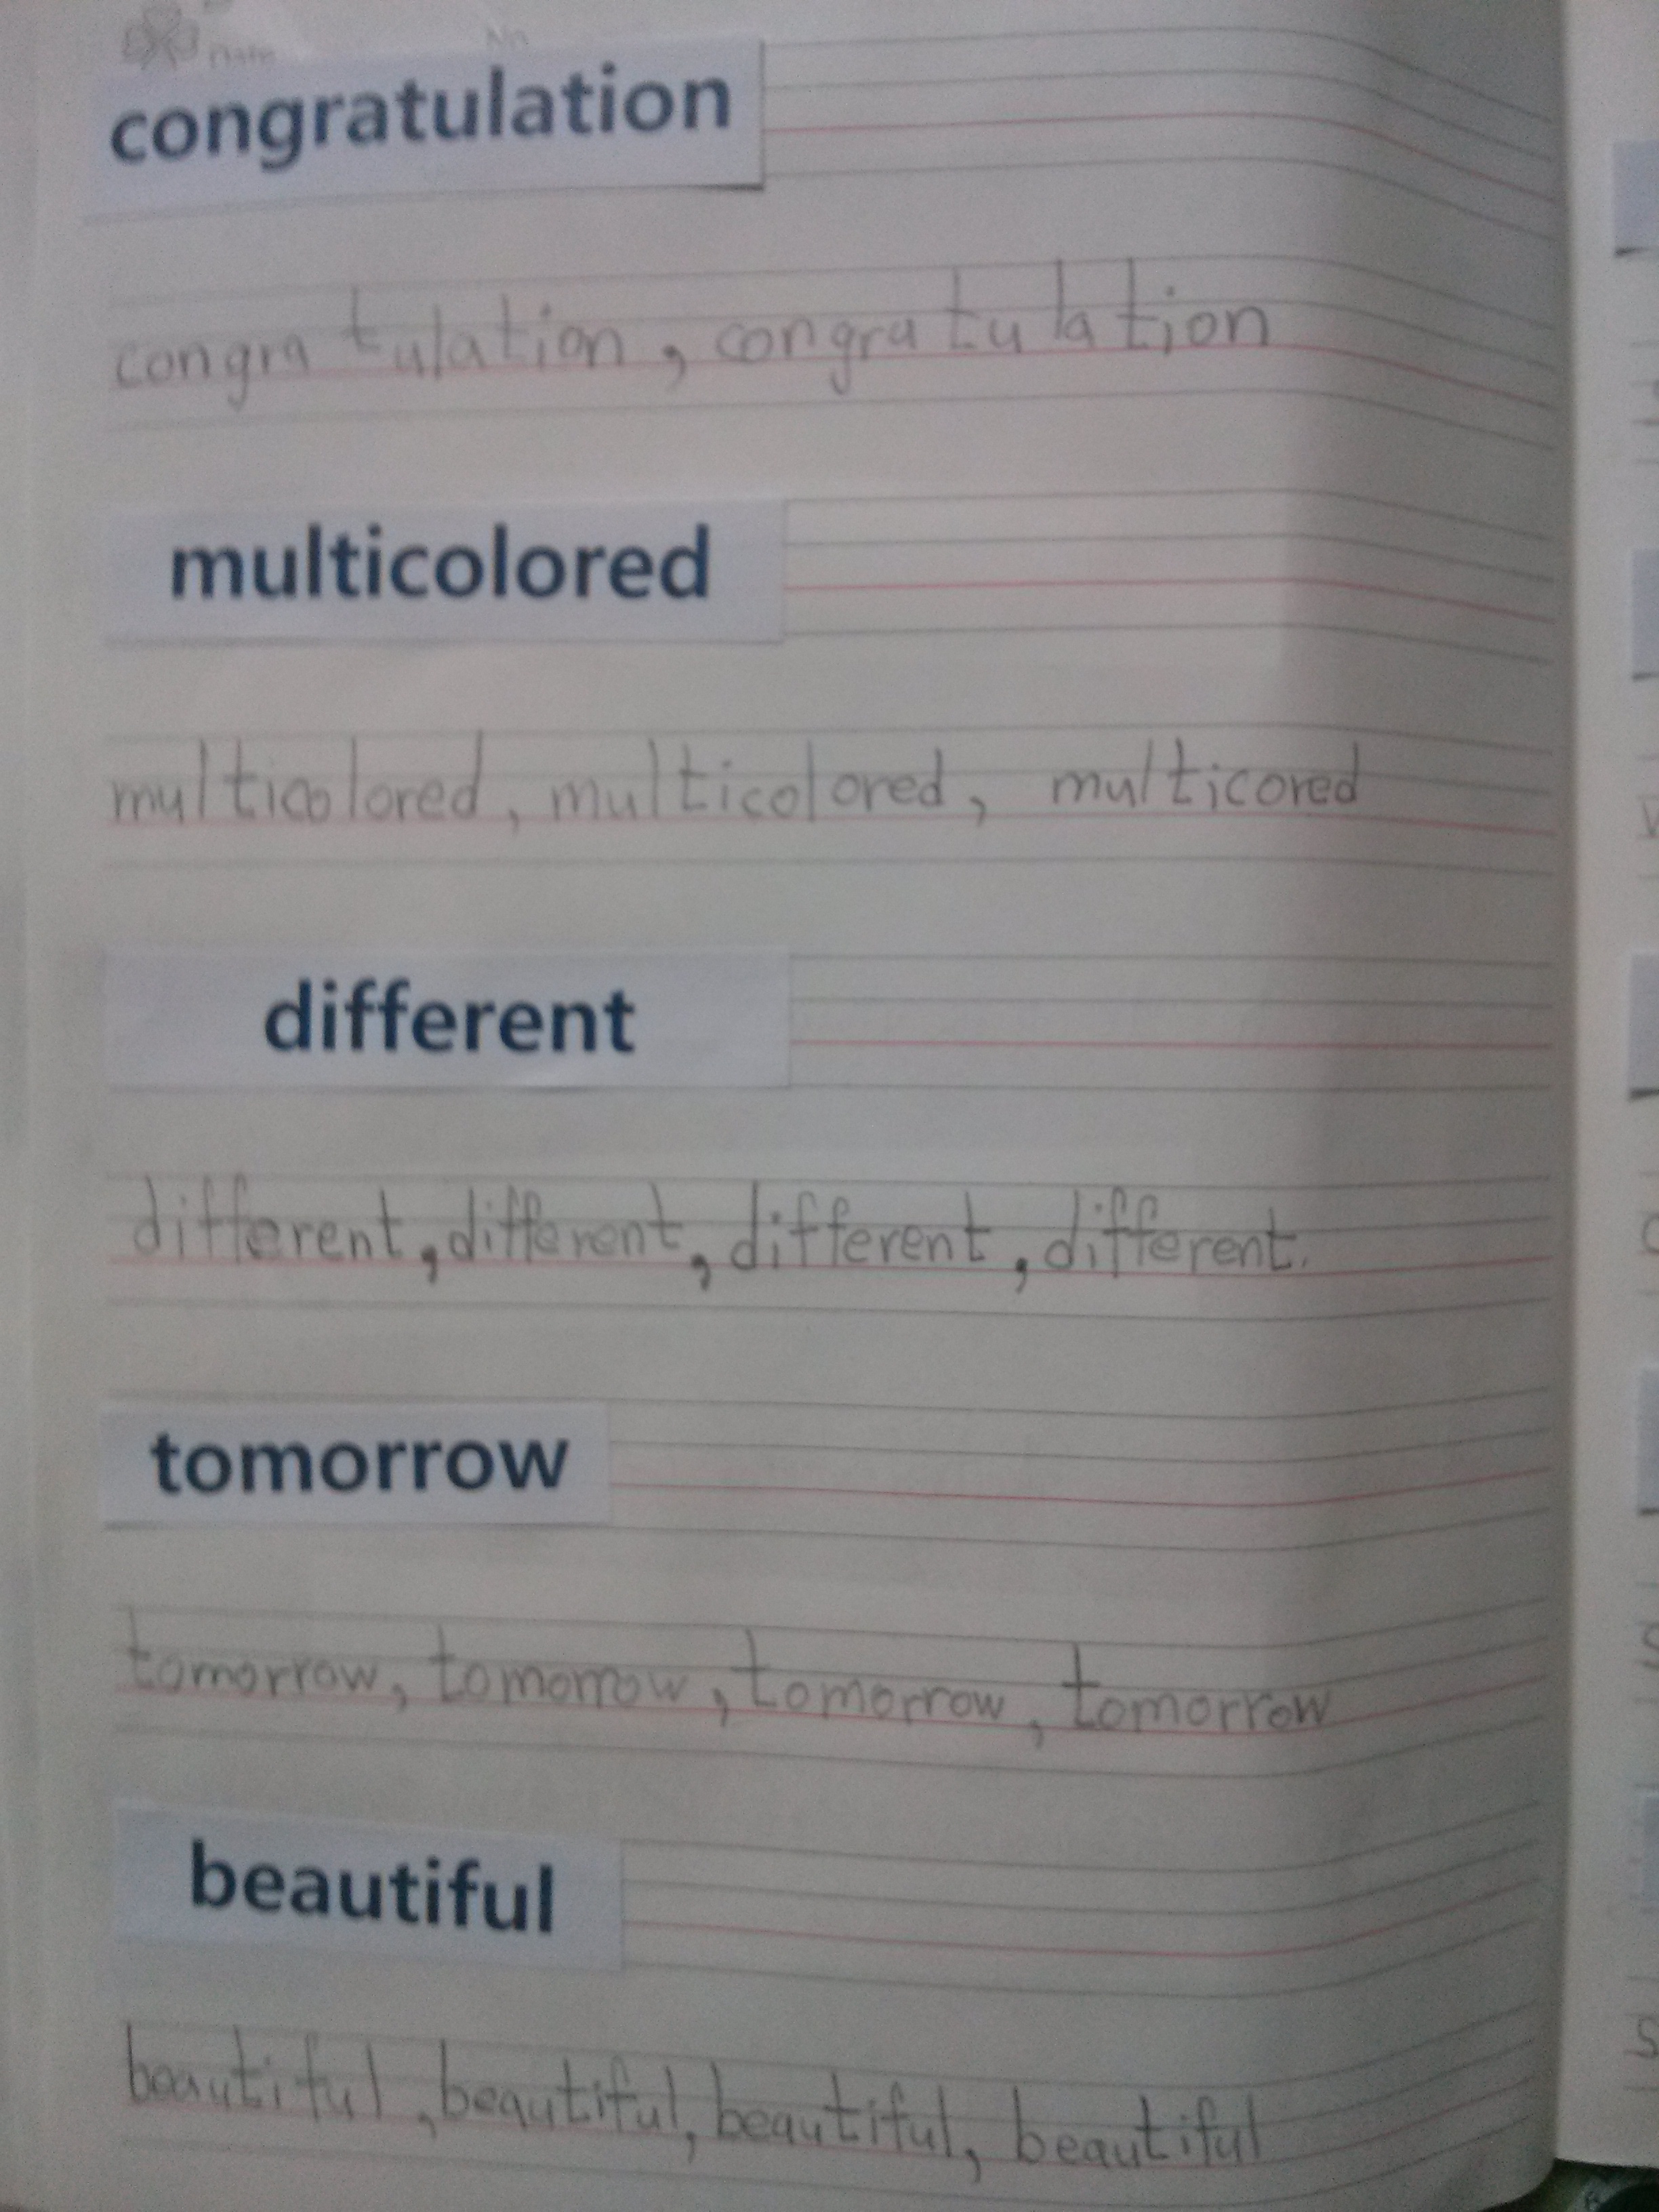 Date No
congratulation
congratulation, congratulation
multicolored
multicolored, multicolored, multicored
different
different, different, different, different.
tomorrow
tomorrow, tomorrow, tomorrow, tomorrow
beautiful
beautiful, beautiful, beautiful, beautiful